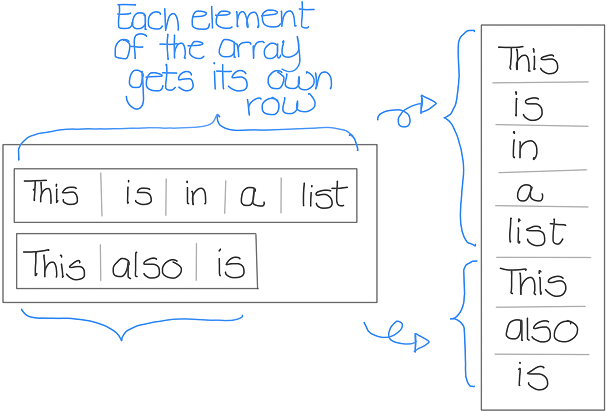 Each element
of the array
gets its own
row
This is in a list
This also is
This
is
in
a
list
This
also
is